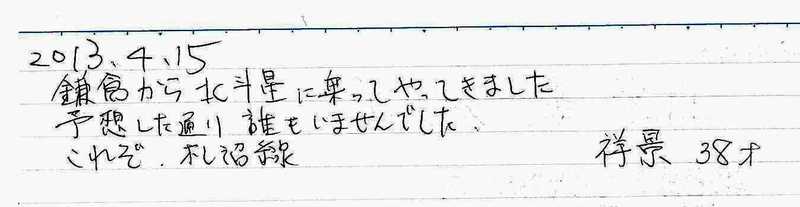 2013.4.15
鎌倉から北斗星に乗ってやってきました
予想した通り誰もいませんでした.
これぞ.札沼線 祥景 38才